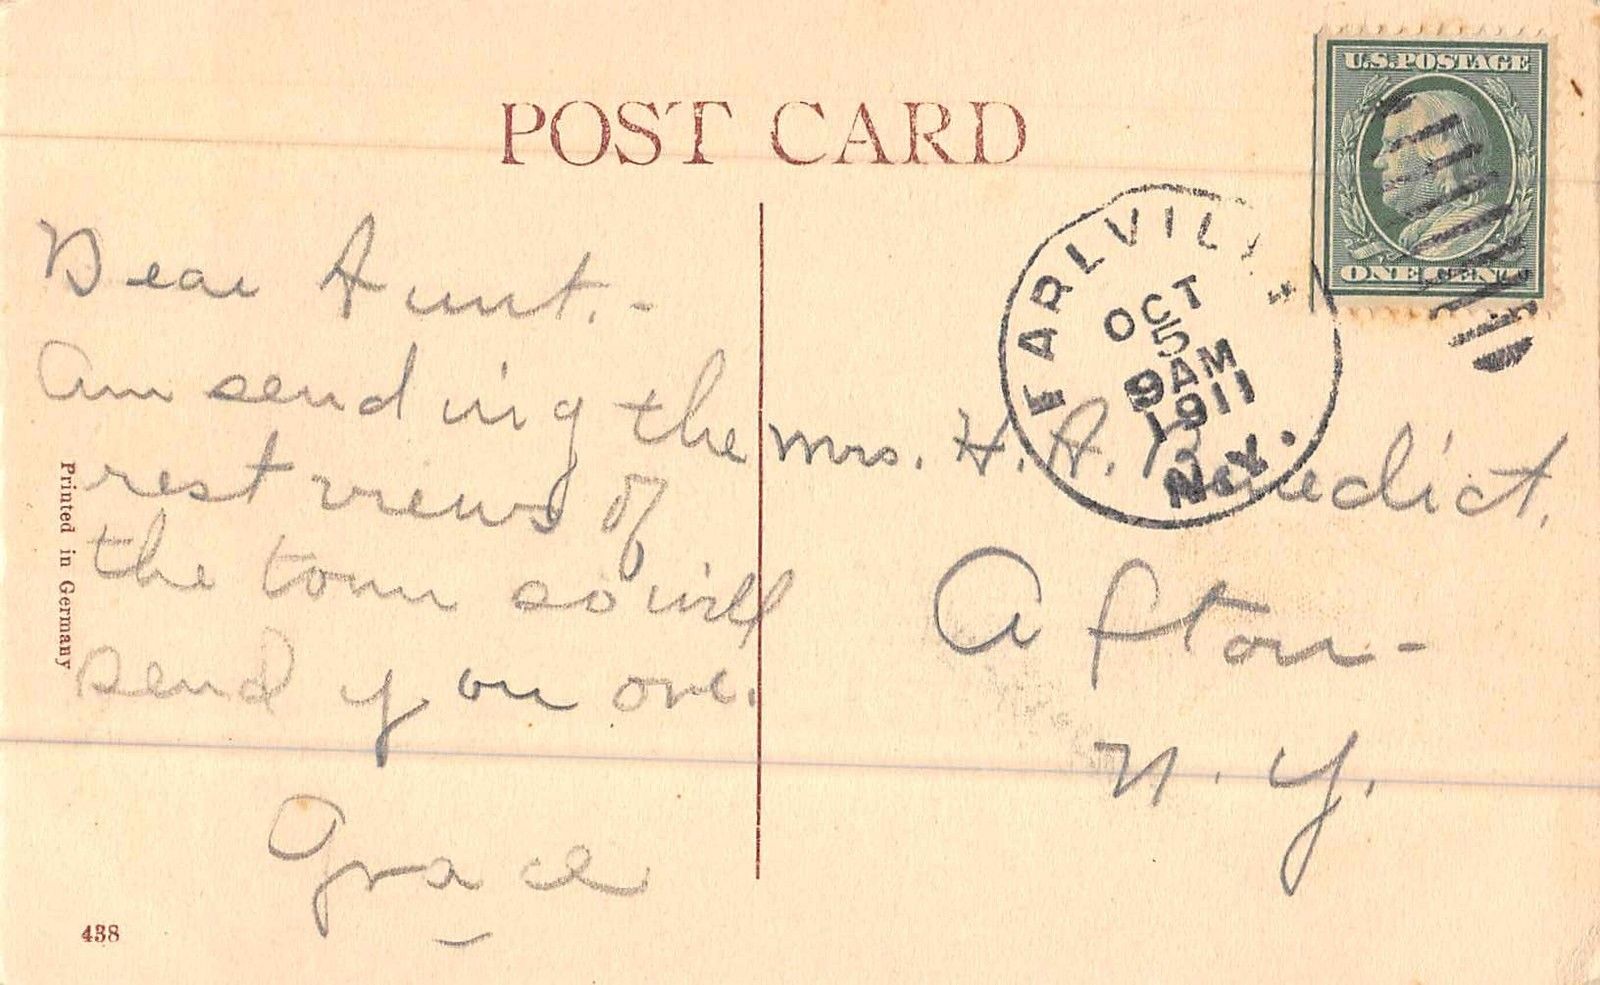 POST CARD
U.S. POSTAGE
ONE CENT
EARLVILLE
OCT
5
9 AM
1911
N.Y.
Dear Aunt.-
Am sending the
rest views of
the town so will
send you one.
Grace
Mrs. H. A. Benedict.
Afton-
N. Y.
Printed in Germany
438